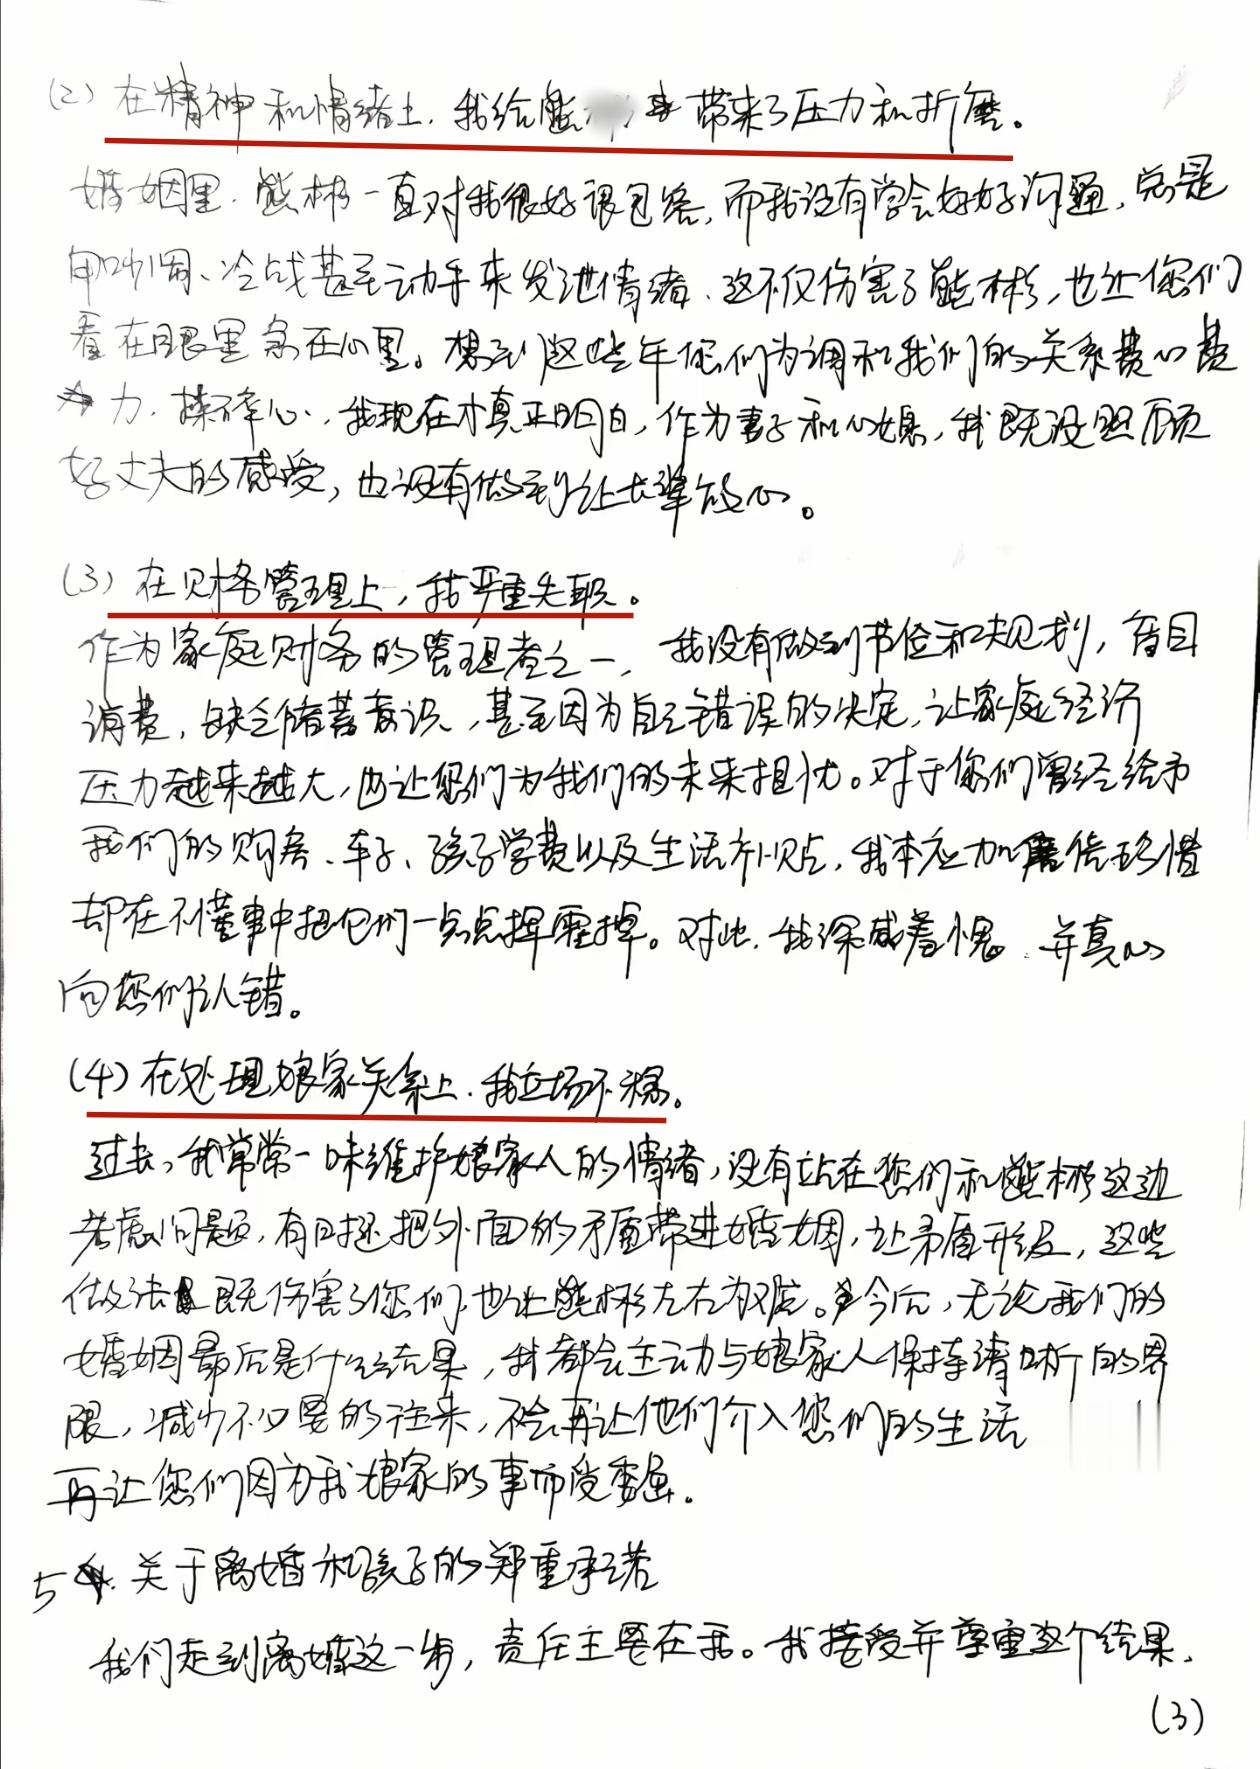 (2) 在精神和情绪上，我给熊 带来了压力和折磨。
婚姻里，熊彬一直对我很好很包容，而我没有学会好好沟通，总是
用吵闹、冷战甚至动手来发泄情绪，这不仅伤害了熊彬，也让您们
看在眼里急在心里。想到这些年您们为调和我们的关系费心费
力，操碎心，我现在才真正明白，作为妻子和儿媳，我既没照顾
好丈夫的感受，也没有做到让长辈放心。
(3) 在财务管理上，我严重失职。
作为家庭财务的管理者之一，我没有做到节俭和规划，盲目
消费，缺乏储蓄意识，甚至因为自己错误的决定，让家庭经济
压力越来越大，也让您们为我们的未来担忧。对于您们曾经给予
我们的购房、车子、孩子学费以及生活补贴，我本应加倍珍惜
却在不懂事中把它们一点点挥霍掉。对此，我深感羞愧，并真心
向您们认错。
(4) 在处理娘家关系上，我立场不稳。
过去，我常常一味维护娘家人的情绪，没有站在您们和熊彬这边
考虑问题，有时还把外面的矛盾带进婚姻，让矛盾升级，这些
做法既伤害了您们，也让熊彬左右为难。今后，无论我们的
婚姻最后是什么结果，我都会主动与娘家人保持清晰的界
限，减少不必要的往来，不会再让他们介入您们的生活
再让您们因为我娘家的事而受委屈。
5. 关于离婚和孩子的郑重承诺
我们走到离婚这一步，责任主要在我。我接受并尊重这个结果，
(3)